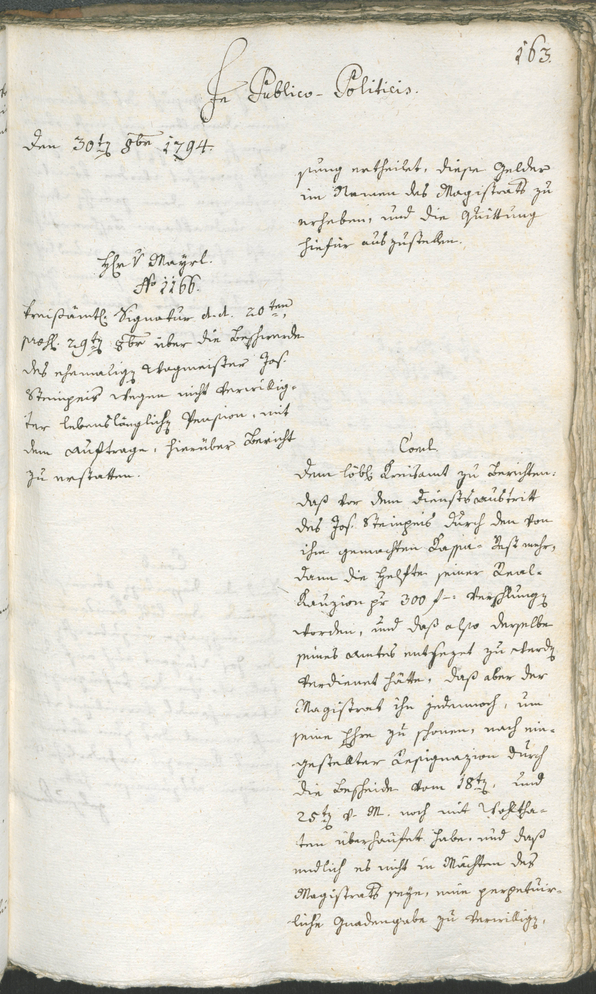 163.
In Publico-Politicis.
Den 30ten 8bre 1794.
Hr v Mayrl.
No 1166.
Kreisämtl. Signatur d. d. 20ten,
praes. 29ten 8bre über die Beschwerde
des ehemaligen Wagmeister Jos.
Steinpeis wegen nicht verwillig-
ter lebenslänglichen Pension, mit
dem Auftrage, hierüber Bericht
zu erstatten.
sung ertheilet, diese Gelder
im Namen des Magistrats zu
erheben, und die Quittung
hiefür auszustellen.
Concl.
Dem löbl. Kreisamt zu berichten:
daß vor dem Dienstsaustritt
des Jos. Steinpeis durch den von
ihm gemachten Kassa-Rest mehr,
dann die Helfte seiner Real-
Kauzion pr 300 f-: verschlungen
worden, und daß also derselbe
seines Amtes entsezet zu werden
verdienet hätte, daß aber der
Magistrat ihn jedennoch, um
seine Ehre zu schonen, nach ein-
gestellter Resignazion durch
die Bescheide vom 18ten, und
25ten v. M. noch mit Wohltha-
ten überhäufet habe, und daß
endlich es nicht in Mächten des
Magistrats seye, eine perpetuir-
liche Gnadengabe zu verwilligen,